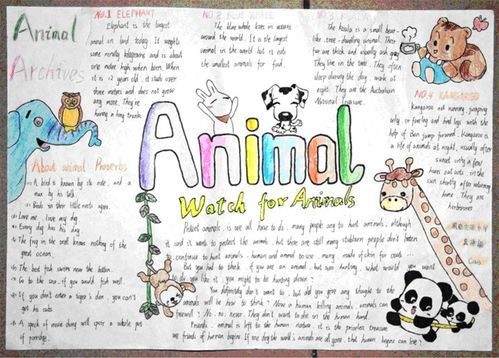 Animal
Archives
NO.1 ELEPHANT
Elephant is the largest
animal on land today. It weighs
some ninety kilograms and is about
one meter high when born. When
it is 12 years old, it stands over
three meters and does not grow
any more. They're
having a long trunk.
NO.2
The blue whale lives in oceans
around the world. It is the largest
animal in the world but it eats
the smallest animals for food.
The koala is a small bear-
like, tree-dwelling animal. Their
fur are thick and usually ash gray
They live in the tree. They often
sleep during the day, wake at
night. They are the Australian
National Treasure.
NO.4 KANGAROO
Kangaroo not running, jumping
only or fueling and hind legs with the
help of jump forward. Kangaroo is
a life of animals at night, usually often
sunset only in few
hours out out in the
sun shortly after returning
home. They are
herbivores
Animal
Watch for Animals
About animal Proverbs
A bird is known by its note, and a
man by his talk.
Birds in their little nests agree.
Love me, love my dog
Every dog has his day
The frog in the well knows nothing of the
great ocean.
The best fish swims near the bottom.
Go to the sea, if you would fish well.
If you don't enter a tiger's den, you can't
get his cubs.
A speck of mouse dung will spoil a whole
pot of porridge.
Protect animals is we all have to do. many people say to hurt animals, although
it said it wants to protect the animals, but there are still many stubborn people don't listen,
continue to hurt animals, human and animal to use, many made of skin for coats ...
But you had to think, if you are an animal, but was hunting, what would you want
to do like it, you might also be hunting down!
You definitely don't want to, but did you give any thought to the
animals will be how to think? Now a human killing animals, animals can
farewell? No, no, never. They don't want to die in the human hand.
Friends, animal is left to the human nature, it is the priceless treasure
are friends of human beings. If one day the world's animals are all gone, that human beings can live?